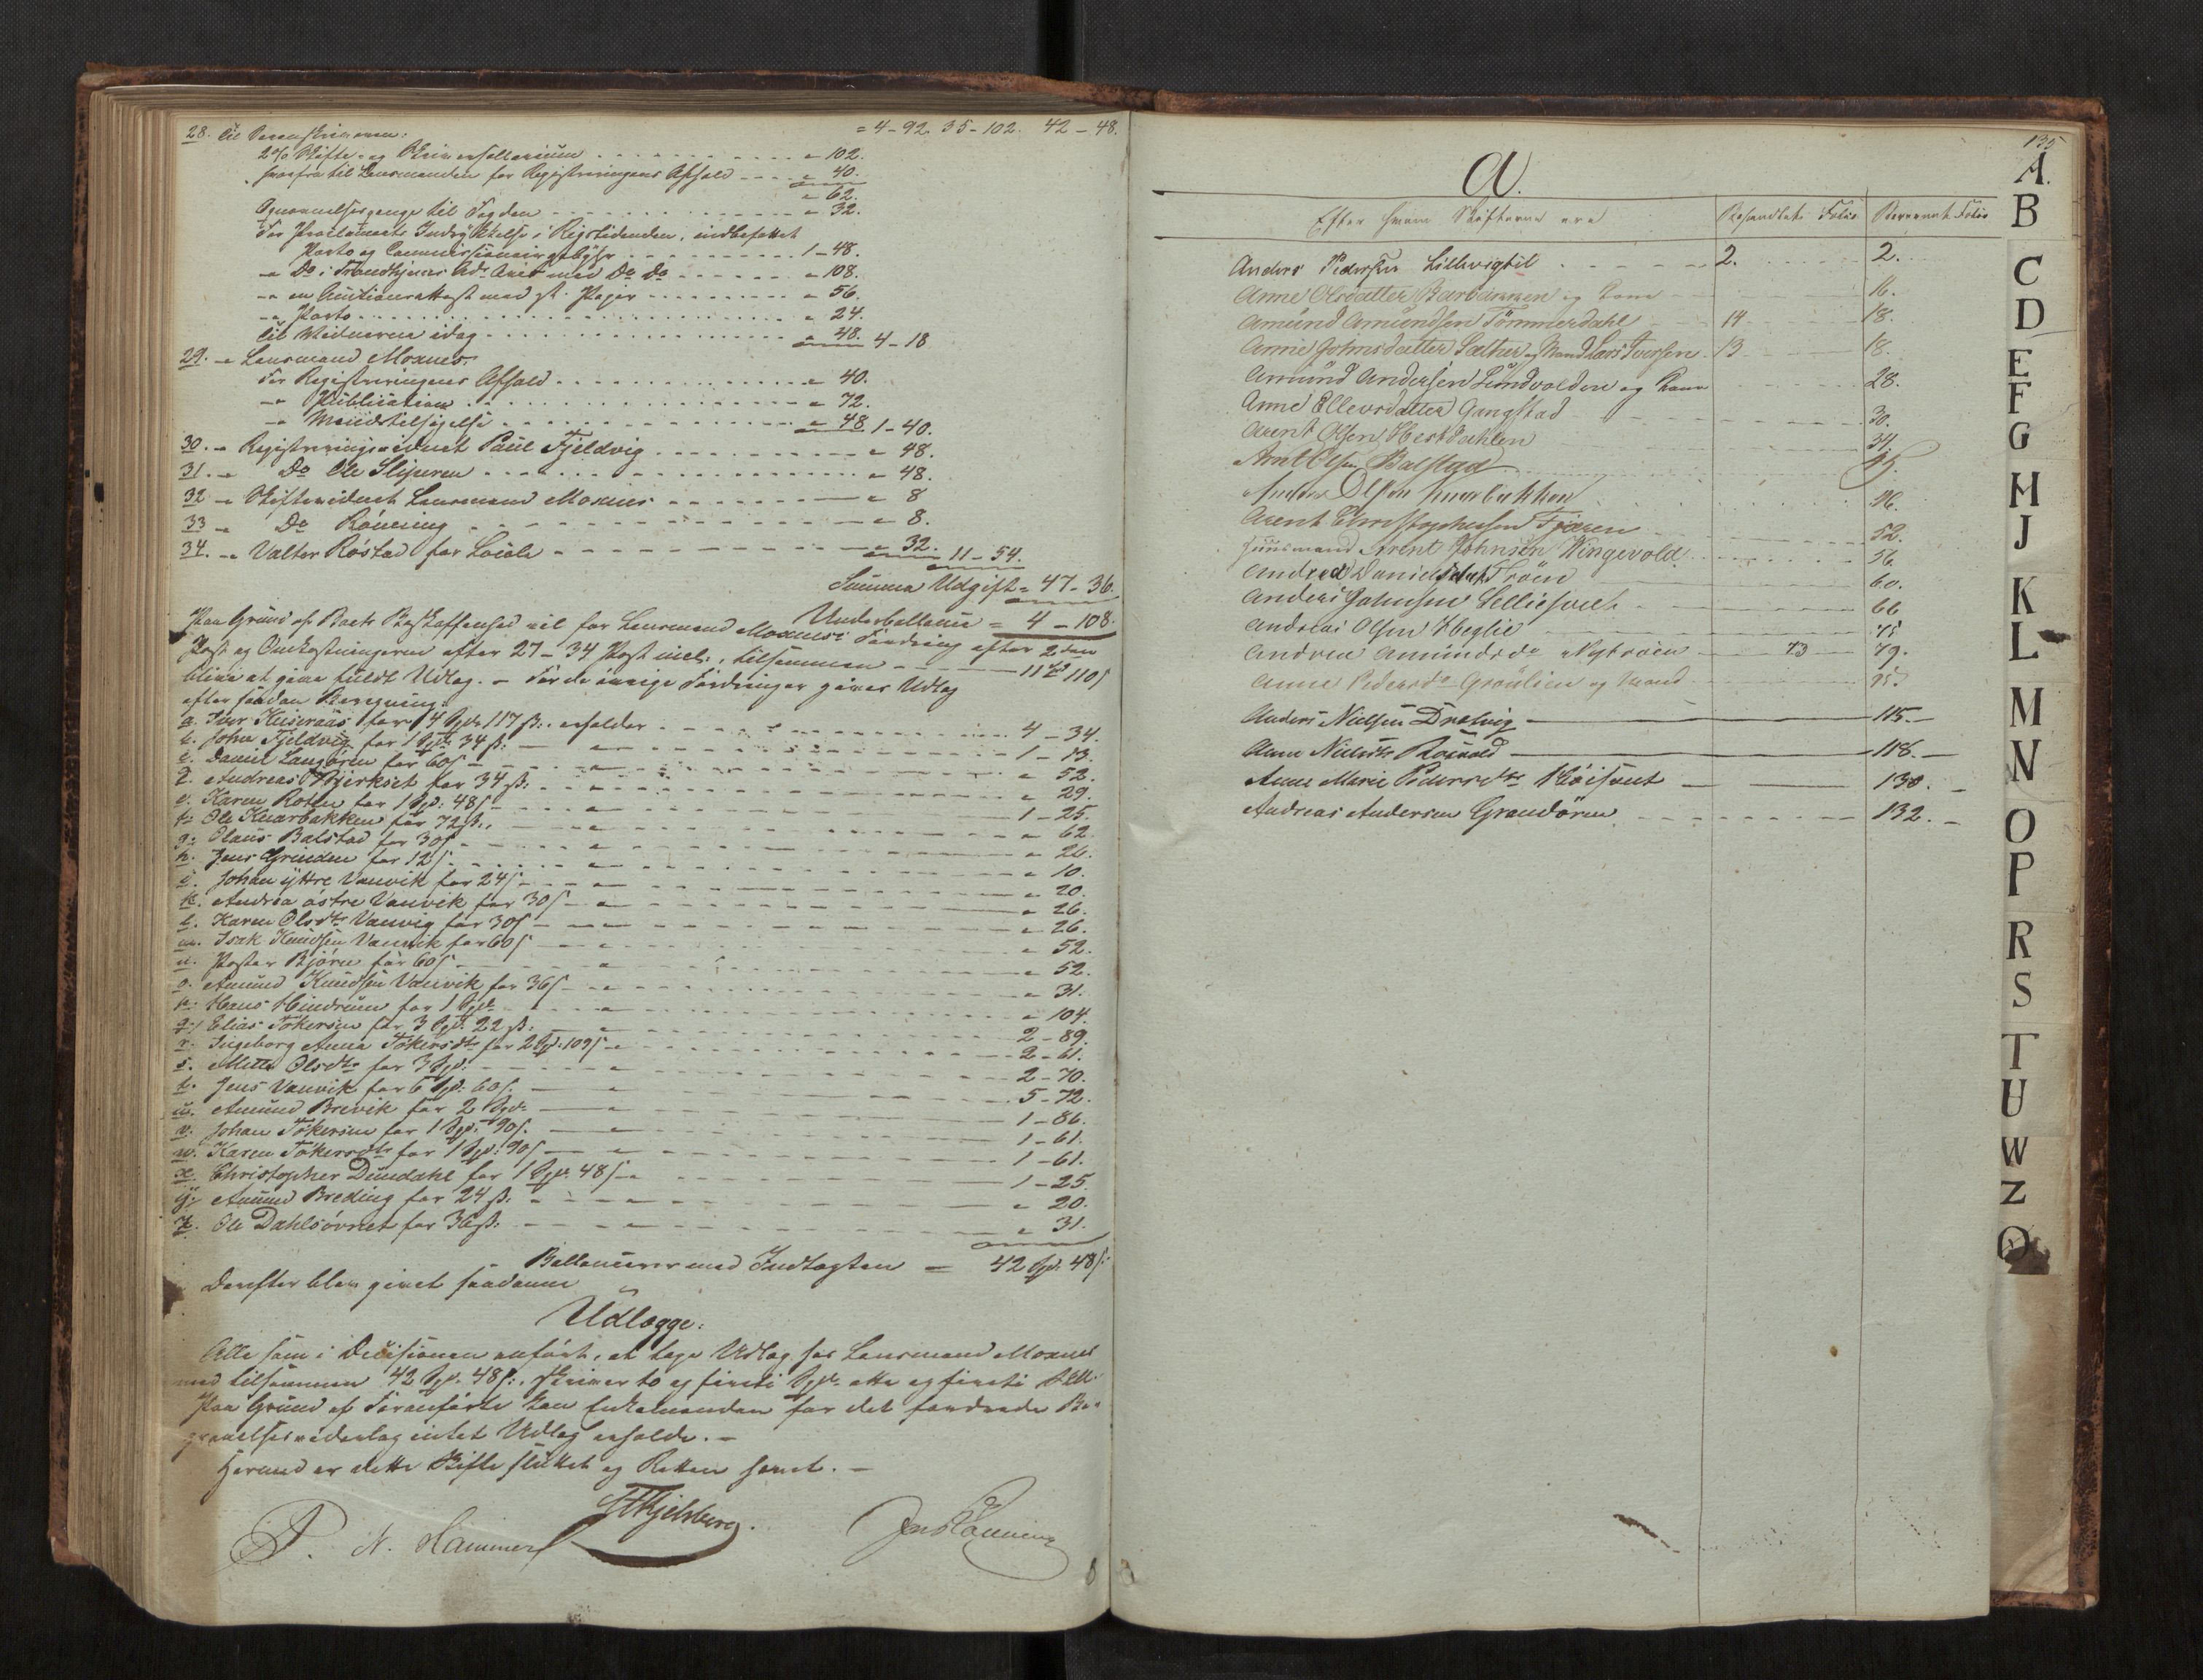 28. til = 4-92. 35-102. 42-48.
2% Skifte- og - 102.
herfra til Lensmanden for Registreringens Afhold - 40.
- 62.
til Fogden - 32.
For Proclamaets Indrykkelse i Rigstidenden, indbefattet
Porto og Commissionairgebyhr 1-48.
- Do i Trondhjems Adr. Avis med Do Do - 108.
- en Auctionsattest med st. Papir - 56.
- Porto - 24.
til Vidnerne idag - 48. 4-18
29. - Lensmand Moxnes:
For Registreringens Afhold - 40.
- Publication - 72.
- Mandstilsigelse - 48 1-40.
30. - Registreringsvidnet Paul Fjeldvig - 48.
31. - Do Ole Sliperen - 48.
32 - Skiftevidnet Lensmand Moxnes - 8
33 - Do Rönning - 8.
34. - Valter Röstad for Locale - 32. 11-54.
Summa Udgift = 47-36.
Underballance = 4-108.
Paa Grund af Boets Beskaffenhed vil for Lensmand Moxnes's Fordring efter 2den
Post og Omkostningerne efter 27-34 Post incl., tilsammen 11 110
blive at give fuldt Udlæg. - For de øvrige Fordringer gives Udlæg
efter saadan Beregning:
a. Iver for 4 Spd 117 ß. erholder 4-34.
b. John Fjeldvig for 1 Spd 34 ß: 1-13.
c. Daniel Langören for 60 ß - 52.
d. Andreas Bjerkset for 34 ß: - 29.
e. Karen Roten for 1 Spd: 48 ß 1-25.
f. Ole Knarbakken for 72 ß., - 62.
g. Olaus Balstad for 30 ß - 26.
h. Jens Grinden for 12 ß - 10.
i. Johan yttre Vanvik for 24 ß - 20.
k. Andrea östre Vanvik for 30 ß - 26.
l. Karen Olsdtr Vanvig for 30 ß - 26.
m. Isak Knudsen Vanvik for 60 ß - 52.
n. Peter Björn for 60 ß - 52.
o. Amund Knudsen Vanvik for 36 ß - 31.
p. Hans Hindrum for 1 Spd - 104.
q. Elias Tökersen for 3 Spd. 22 ß: 2-89.
r. Ingeborg Anna Tökersdtr for 2 Spd: 109 ß 2-61.
s. Mette Olsdtr for 3 Spd: 2-70.
t. Jens Vanvik for 6 Spd: 60 ß 5-72.
u. Amund Brevik for 2 Spd. 1-86.
v. Johan Tökersen for 1 Spd. 90 ß. 1-61.
w. Karen Tökersdtr for 1 Spd: 90 ß 1-61.
x. Christopher Dundahl for 1 Spd. 48 ß 1-25.
y. Amund Breding for 24 ß: - 20.
z. Ole Dahlsövret for 36 ß: - 31.
Ballancerer med Indtægten = 42 Spd. 48 ß:
Derefter blev givet saadanne
Udlægge:
Alle som i Decisionen anfört, at tage Udlæg hos Lensmand Moxnes
med tilsammen 42 Spd. 48 ß:, skriver to og firti Spd. otte og firti Skill.
Paa Grund af Foranförte kan Enkemanden for det fordrede Be-
gravelsesvederlag intet Udlæg erholde. -
Hermed er dette Skifte sluttet og Retten hævet. -
P. N. Hammer
135
A.
Efter hvem Skifterne ere Behandlet Folio Folio
Anders Pedersen Lillevigtil 2. 2.
Anne Olsdatter og 16.
Amund Amundsen Tömmerdahl 14 18.
Anne Johnsdatter Sæther og Mand Lars Iversen 13 18.
Amund Andersen Sundvolden og Kone 28.
Anne Ellevsdatter Gangstad 30.
Arent Olsen Hestdahlen 34.
Arnt Olsen Balstad
Anders Olsen Knarbakken 46.
Arent Christophersen Fjæren 52.
Huusmand Arent Johnsen Ringevold 56.
Andrea Danielsdatr Tröen 60.
Anders Johnsen 66
Andreas Olsen Heglie 75
Andrea Amundsdr Nytröen 73 79.
Anne Pedersdr Grönlien og Mand 95
Anders Nielsen Dretvig 115.
Anne Nielsdtr 118.
Anne Marie Pedersdtr 130.
Andreas Andersen Grandören 132.
A.
B
C
D
E
F
G
H
J
K
L
M
N
O
P
R
S
T
U
W
Z
Ø